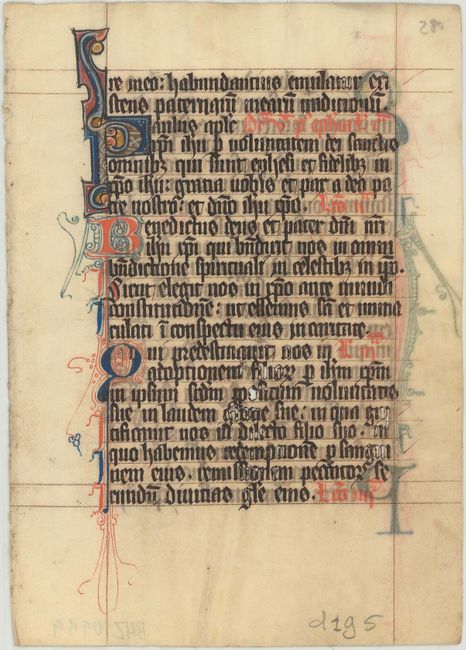 re meo: habundantius emulator exi
stens paternarum mearum traditionum.
Paulus apls
xpi ihu p voluntatem dei sanctis
omnibz qui sunt ephesi et fidelibz in
xpo ihu: gratia vobis et pax a deo pa
tre nostro: et dno ihu xpo.
Benedictus deus et pater dni nri
ihu xpi qui bndixit nos in omni
bndictione spirituali in celestibz in xpo.
Sicut elegit nos in ipso ante mundi
constitutionem: ut essemus sci et imma
culati i conspectu eius in caritate.
Qui predestinavit nos in
adoptionem filior p ihm xpm
in ipsum scdm propositum voluntatis
sue in laudem glorie sue: in qua gra
tificavit nos in dilecto filio suo. In
quo habemus redemptionem p sangui
nem eius. remissionem peccator se
cundum divitias gle eius.
d195